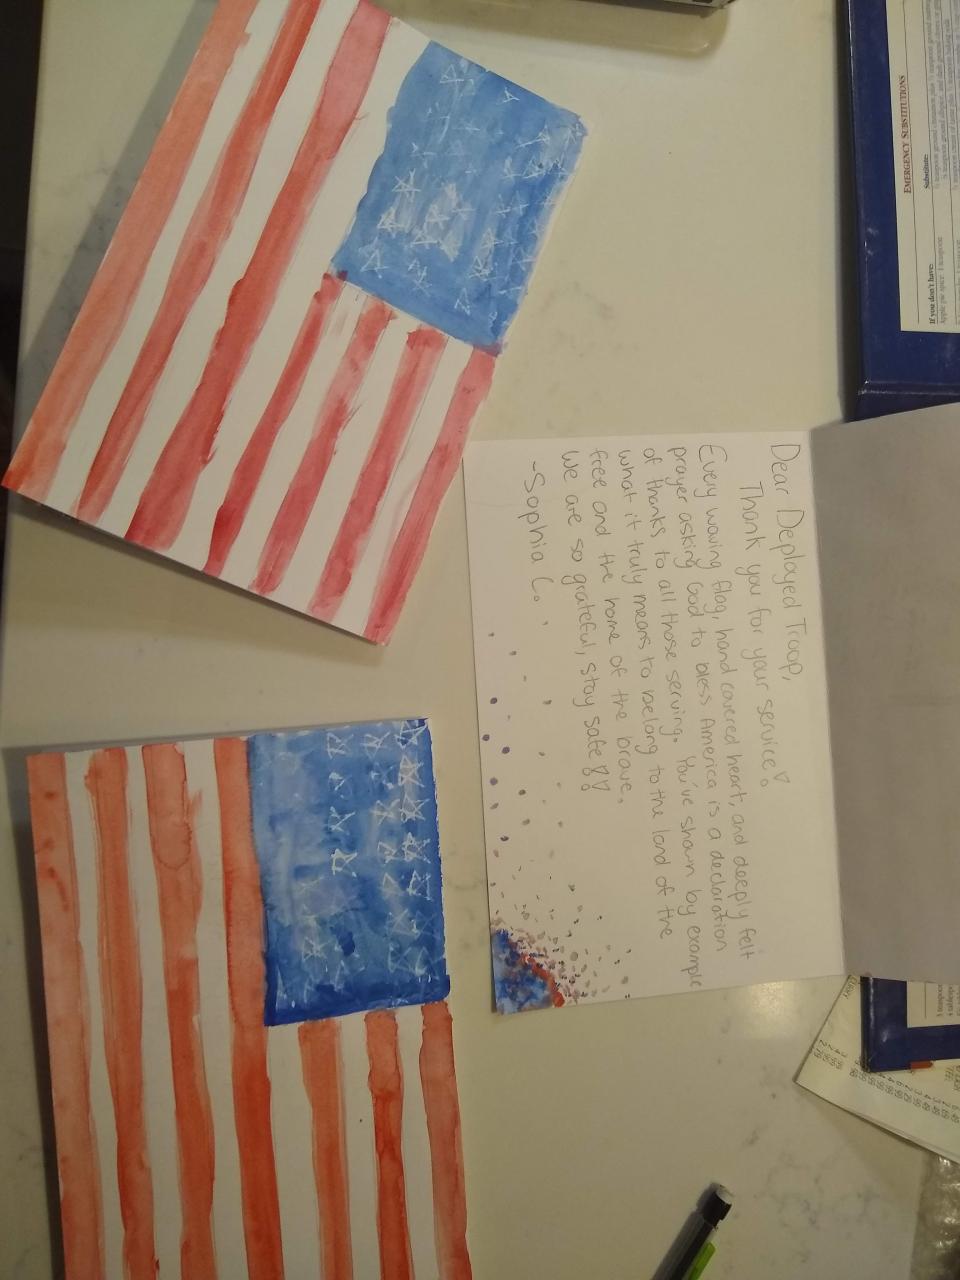 Dear Deployed Troop,
Thank you for your service!
Every waving flag, hand covered heart, and deeply felt
prayer asking God to bless America is a declaration
of thanks to all those serving. You've shown by example
what it truly means to belong to the land of the
free and the home of the brave.
We are so grateful, stay safe!
-Sophia C.
EMERGENCY SUBSTITUTIONS
If you don't have:
Substitute:
Apple pie spice 1 teaspoon